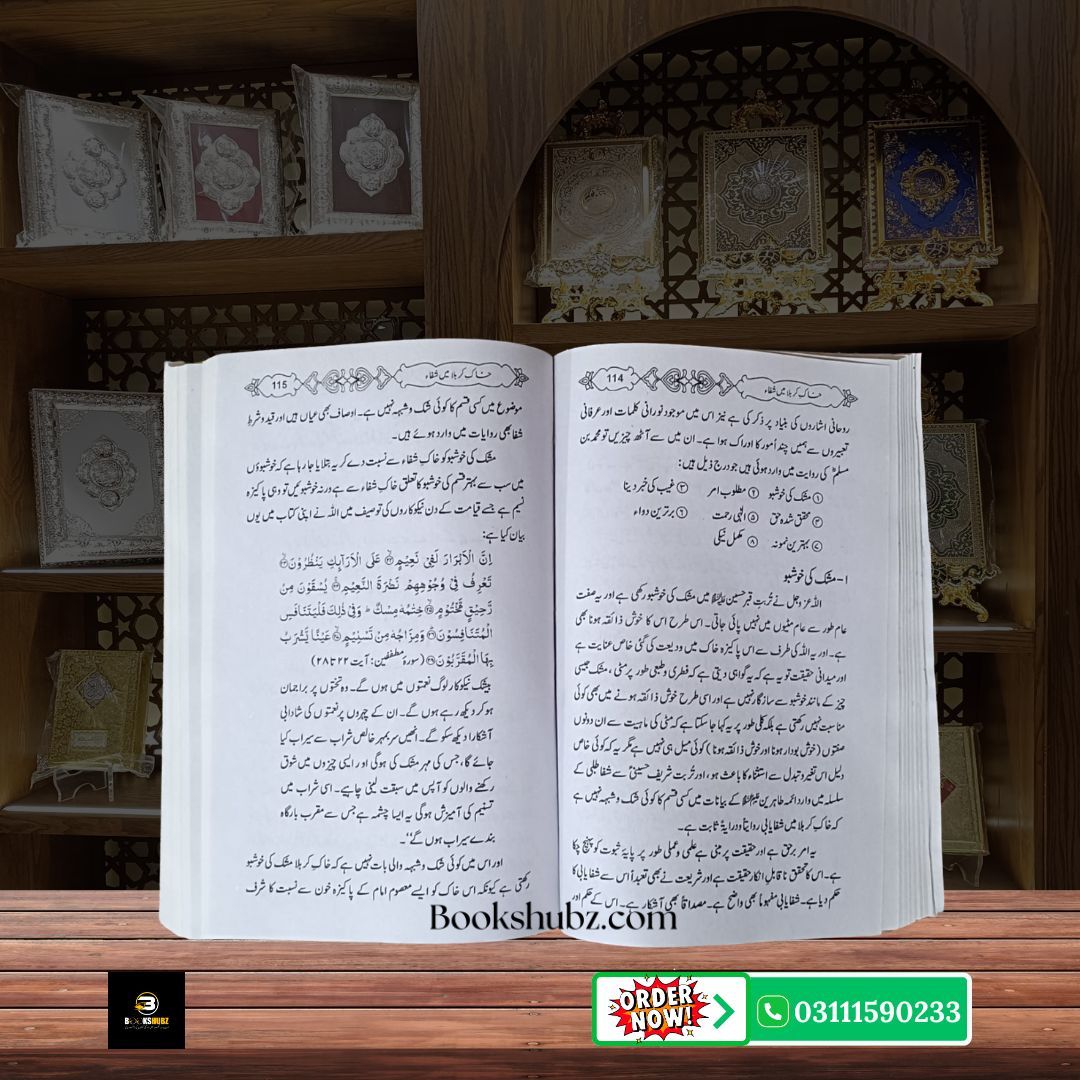 114
خاکِ کربلا میں شفاء
روحانی اشاروں کی بنیاد پر ذکر کی ہے نیز اس میں موجود نورانی کلمات اور عرفانی
تعبیروں سے ہمیں چند اُمور کا ادراک ہوا ہے۔ ان میں سے آٹھ چیزیں تو محمد بن
مسلمؓ کی روایت میں وارد ہوئی ہیں جو درج ذیل ہیں:
① مشک کی خوشبو ② مطلوب امر ③ غیب کی خبر دینا
④ محقق شدہ حق ⑤ الٰہی رحمت ⑥ برترین دواء
⑦ بہترین نمونہ ⑧ مکمل نیکی
۱- مشک کی خوشبو
اللہ عزوجل نے تُربتِ قبرِ حسین علیہ السلام میں مشک کی خوشبو رکھی ہے اور یہ صفت
عام طور سے عام مٹیوں میں نہیں پائی جاتی۔ اس طرح اس کا خوش ذائقہ ہونا بھی
ہے۔ اور یہ اللہ کی طرف سے اس پاکیزہ خاک میں ودیعت کی گئی خاص عنایت ہے
اور میدانی حقیقت تو یہ ہے کہ یہ گواہی دیتی ہے کہ فطری و طبعی طور پر مٹی، مشک جیسی
چیز کے مانند خوشبو سے سازگار نہیں ہے اور اسی طرح خوش ذائقہ ہونے میں بھی کوئی
مناسبت نہیں رکھتی ہے بلکہ کلی طور پر یہ کہا جا سکتا ہے کہ مٹی کی ماہیت سے ان دونوں
صفتوں (خوش بودار ہونا اور خوش ذائقہ ہونا) کوئی میل ہی نہیں ہے مگر یہ کہ کوئی خاص
دلیل اس تغیر و تبدل سے استثناء کا باعث ہو، اور تُربت شریف حسینیؑ سے شفا طلبی کے
سلسلہ میں وارد ائمہ طاہرین علیہم السلام کے بیانات میں کسی قسم کا کوئی شک و شبہہ نہیں ہے
کہ خاکِ کربلا میں شفایابی روایتاً و درایۃً ثابت ہے۔
یہ امر برحق ہے اور حقیقت پر مبنی ہے علمی و عملی طور پر پایۂ ثبوت کو پہنچ چکا
ہے۔ اس کا تحقق ناقابلِ انکار حقیقت ہے اور شریعت نے بھی تعبداً اس سے شفایابی کا
حکم دیا ہے۔ شفایابی مفہوماً بھی واضح ہے۔ مصداقاً بھی آشکار ہے۔ اس کے حکم اور
115
خاکِ کربلا میں شفاء
موضوع میں کسی قسم کا کوئی شک و شبہہ نہیں ہے۔ اوصاف بھی عیاں ہیں اور قید و شرطِ
شفا بھی روایات میں وارد ہوئے ہیں۔
مشک کی خوشبو کو خاکِ شفاء سے نسبت دے کر یہ بتلایا جا رہا ہے کہ خوشبوؤں
میں سب سے بہتر قسم کی خوشبو کا تعلق خاکِ شفاء سے ہے ورنہ خوشبوئیں تو وہی پاکیزہ
نسیم ہے جسے قیامت کے دن نیکوکاروں کی توصیف میں اللہ نے اپنی کتاب میں یوں
بیان کیا ہے:
اِنَّ الْاَبْرَارَ لَفِیْ نَعِیْمٍ۝۲۲ عَلَی الْاَرَآئِكِ یَنْظُرُوْنَ۝۲۳
تَعْرِفُ فِیْ وُجُوْهِهِمْ نَضْرَةَ النَّعِیْمِ۝۲۴ یُسْقَوْنَ مِنْ
رَّحِیْقٍ مَّخْتُوْمٍ۝۲۵ خِتٰمُهٗ مِسْكٌ ؕ وَفِیْ ذٰلِكَ فَلْیَتَنَافَسِ
الْمُتَنَافِسُوْنَ۝۲۶ وَمِزَاجُهٗ مِنْ تَسْنِیْمٍ۝۲۷ عَیْنًا یَّشْرَبُ
بِهَا الْمُقَرَّبُوْنَ۝۲۸ (سورۂ مطففین: آیت ۲۲ تا ۲۸)
بیشک نیکوکار لوگ نعمتوں میں ہوں گے۔ وہ تختوں پر براجمان
ہو کر دیکھ رہے ہوں گے۔ ان کے چہروں پر نعمتوں کی شادابی
آشکارا دیکھ سکو گے۔ انھیں سربمہر خالص شراب سے سیراب کیا
جائے گا، جس کی مہر مشک کی ہوگی اور ایسی چیزوں میں شوق
رکھنے والوں کو آپس میں سبقت لینی چاہیے۔ اسی شراب میں
تسنیم کی آمیزش ہوگی یہ ایسا چشمہ ہے جس سے مقرب بارگاہ
بندے سیراب ہوں گے“۔
اور اس میں کوئی شک و شبہہ والی بات نہیں ہے کہ خاکِ کربلا مشک کی خوشبو
رکھتی ہے کیونکہ اس خاک کو ایسے معصوم امام کے پاکیزہ خون سے نسبت کا شرف
Bookshubz.com
BOOKSHUBZ
ORDER NOW!
03111590233